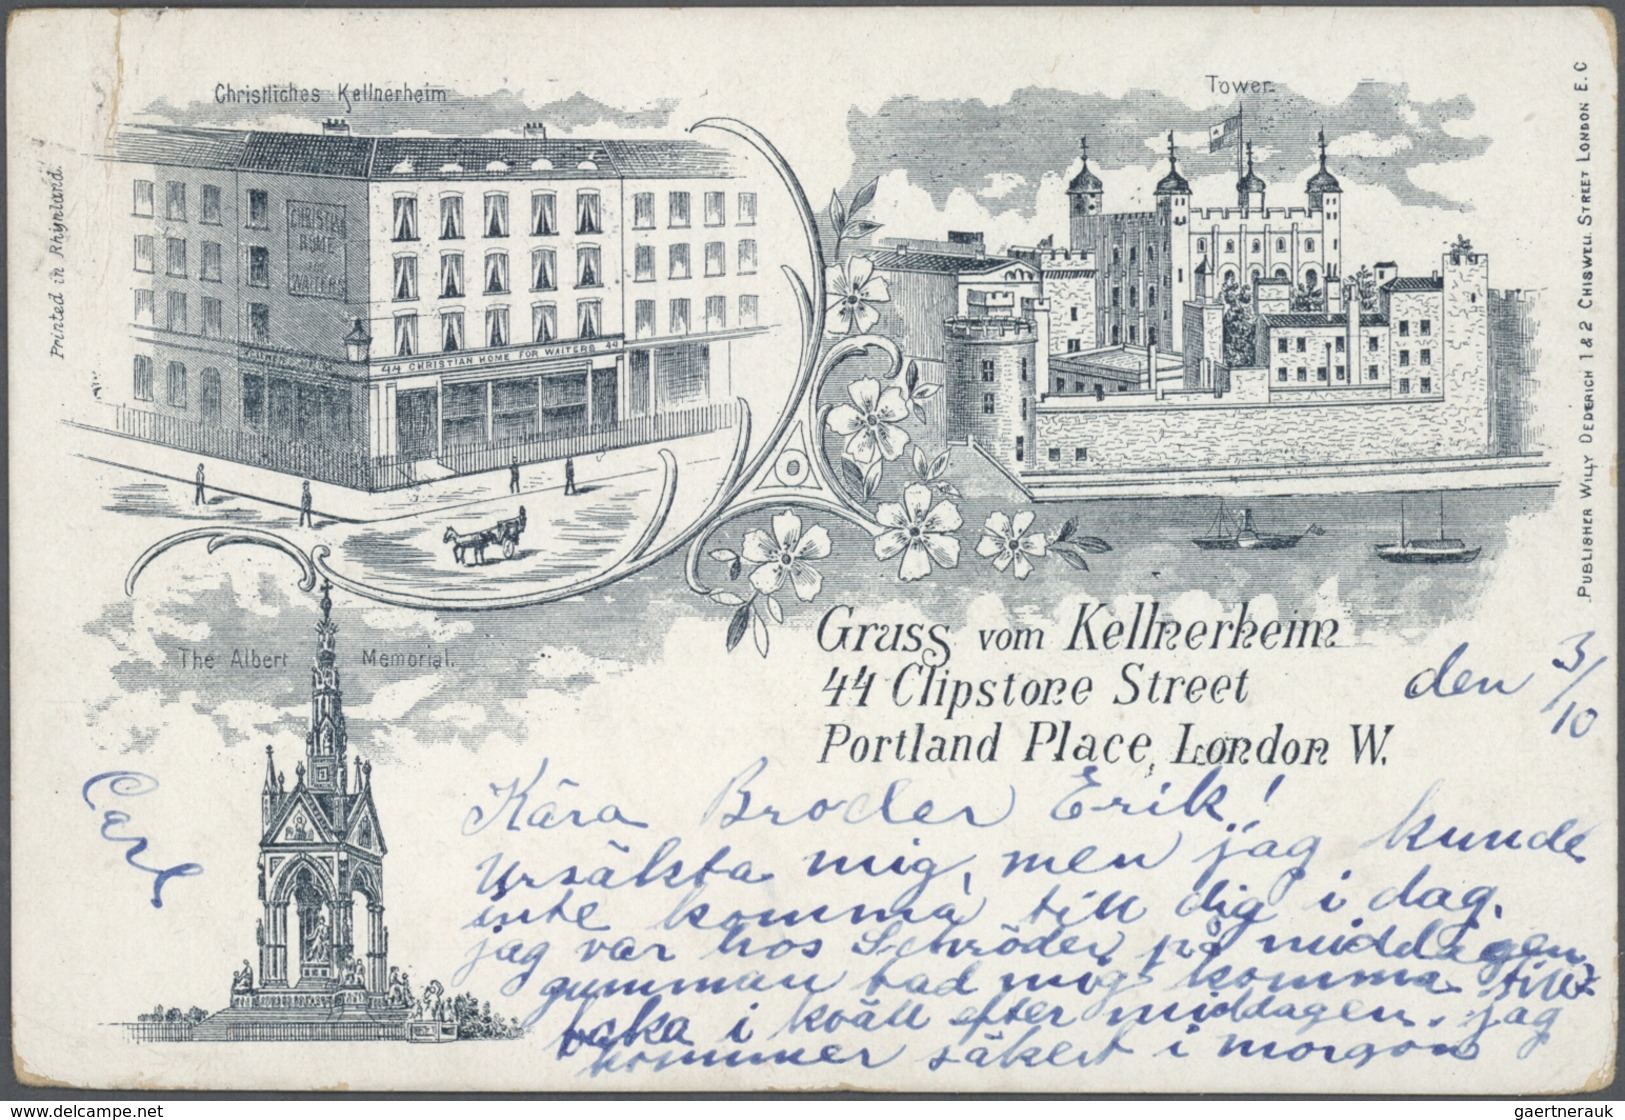 Christliches Kellnerheim
Tower.
Printed in Rhijnland.
PUBLISHER WILLY DEDERICH 1 & 2 CHISWELL STREET LONDON E. C
CHRISTIAN
HOME
FOR
WAITERS
44 CHRISTIAN HOME FOR WAITERS 44
The Albert Memorial.
Gruss vom Kellnerheim
44 Clipstone Street
Portland Place, London W.
den 3/10
Carl
Kära Broder Erik!
Ursäkta mig, men jag kunde
inte komma till dig i dag.
jag var hos Schröder på middagen
gumman bad mig komma till-
baka i kväll efter middagen. jag
kommer säkert i morgon
delcampe.net
gaertnerauk